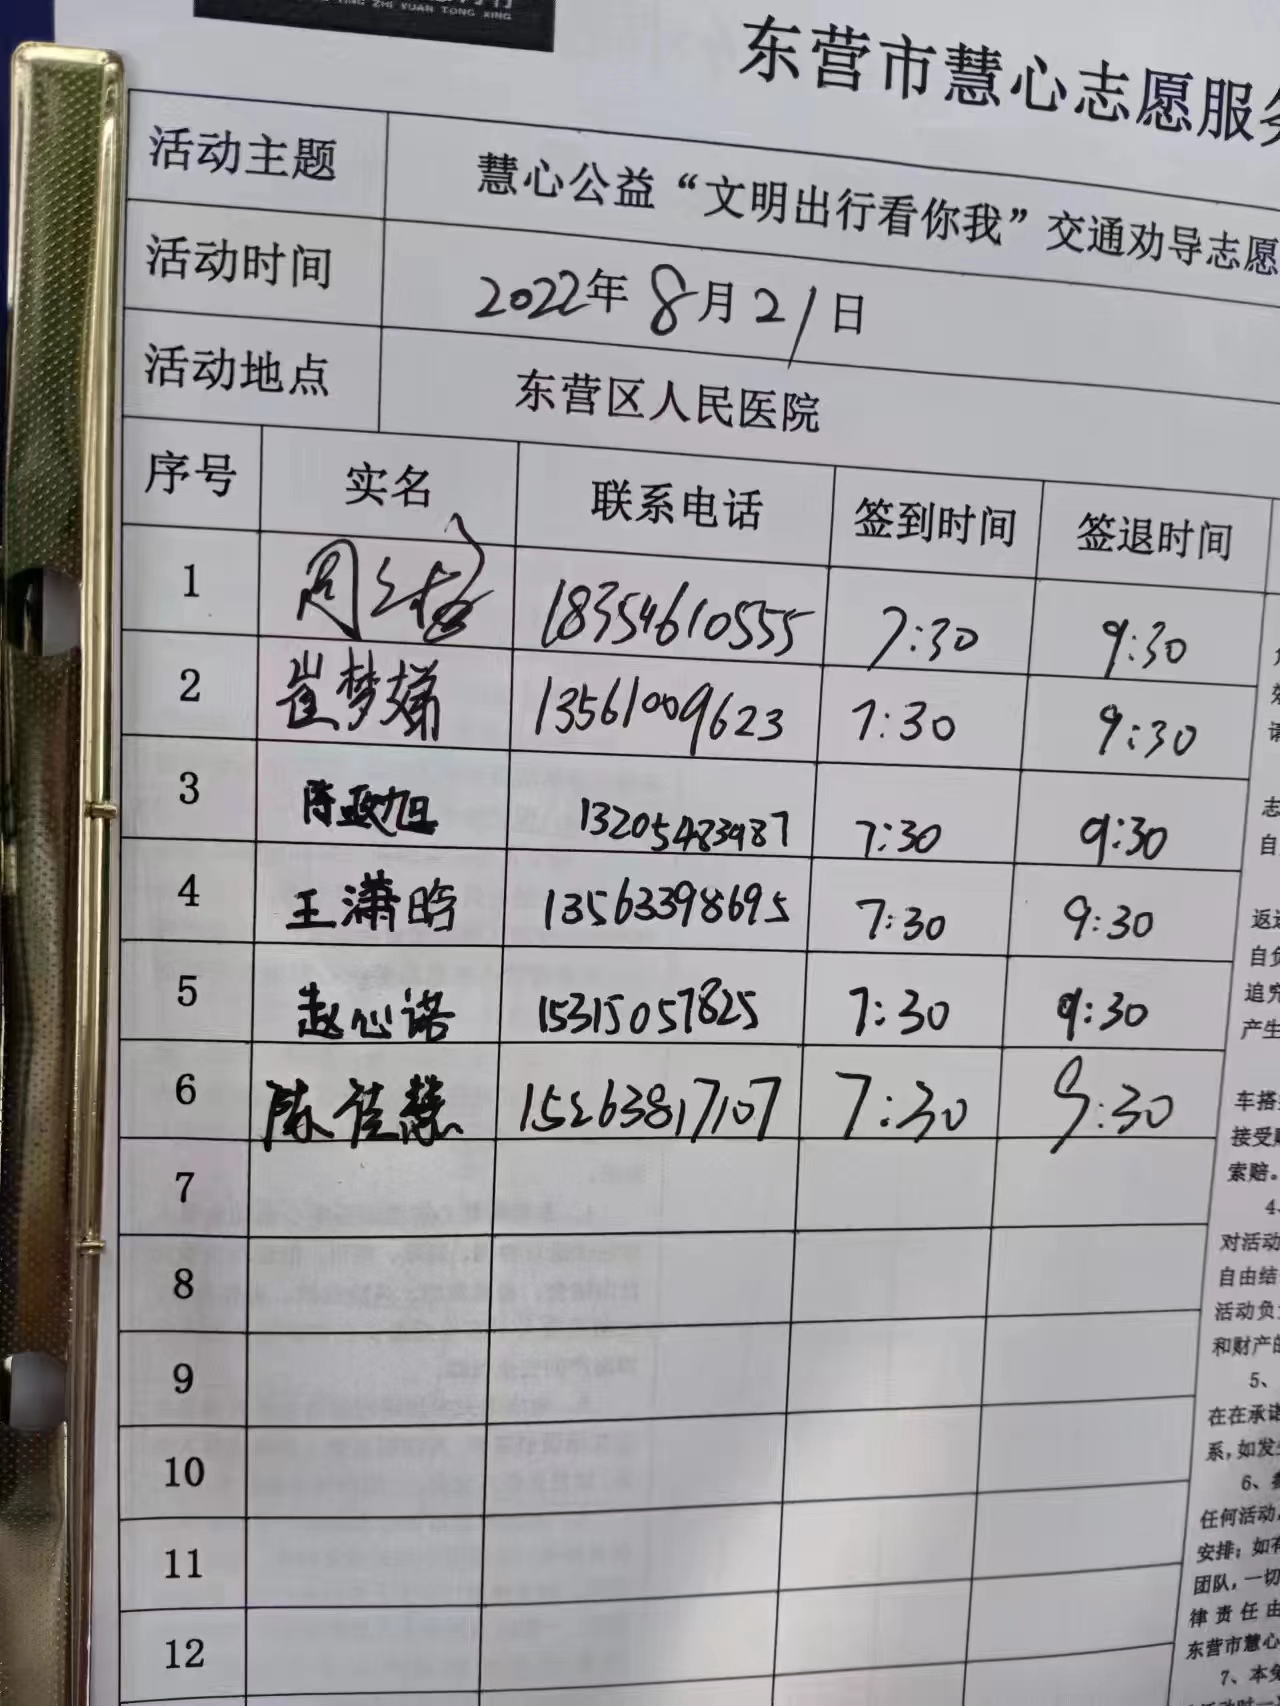 ING ZHI YUAN TONG XING
东营市慧心志愿服务
活动主题 慧心公益“文明出行看你我”交通劝导志愿
活动时间 2022年8月21日
活动地点 东营区人民医院
序号 实名 联系电话 签到时间 签退时间
1 周 18354610555 7:30 9:30
2 崔梦娣 13561009623 7:30 9:30
3 陈政旭 13205483987 7:30 9:30
4 王潇晗 13563398695 7:30 9:30
5 赵心诺 15315057825 7:30 9:30
6 陈佳慧 15263817107 7:30 9:30
7
8
9
10
11
12
请
志
自
返
自负
追究
产生
车搭
接受
索赔。
4、
对活动
自由结
活动负
和财产的
5、
在在承诺
系,如发生
6、
任何活动,
安排;如有
团队,一切
律责任由
东营市慧心
7、本免